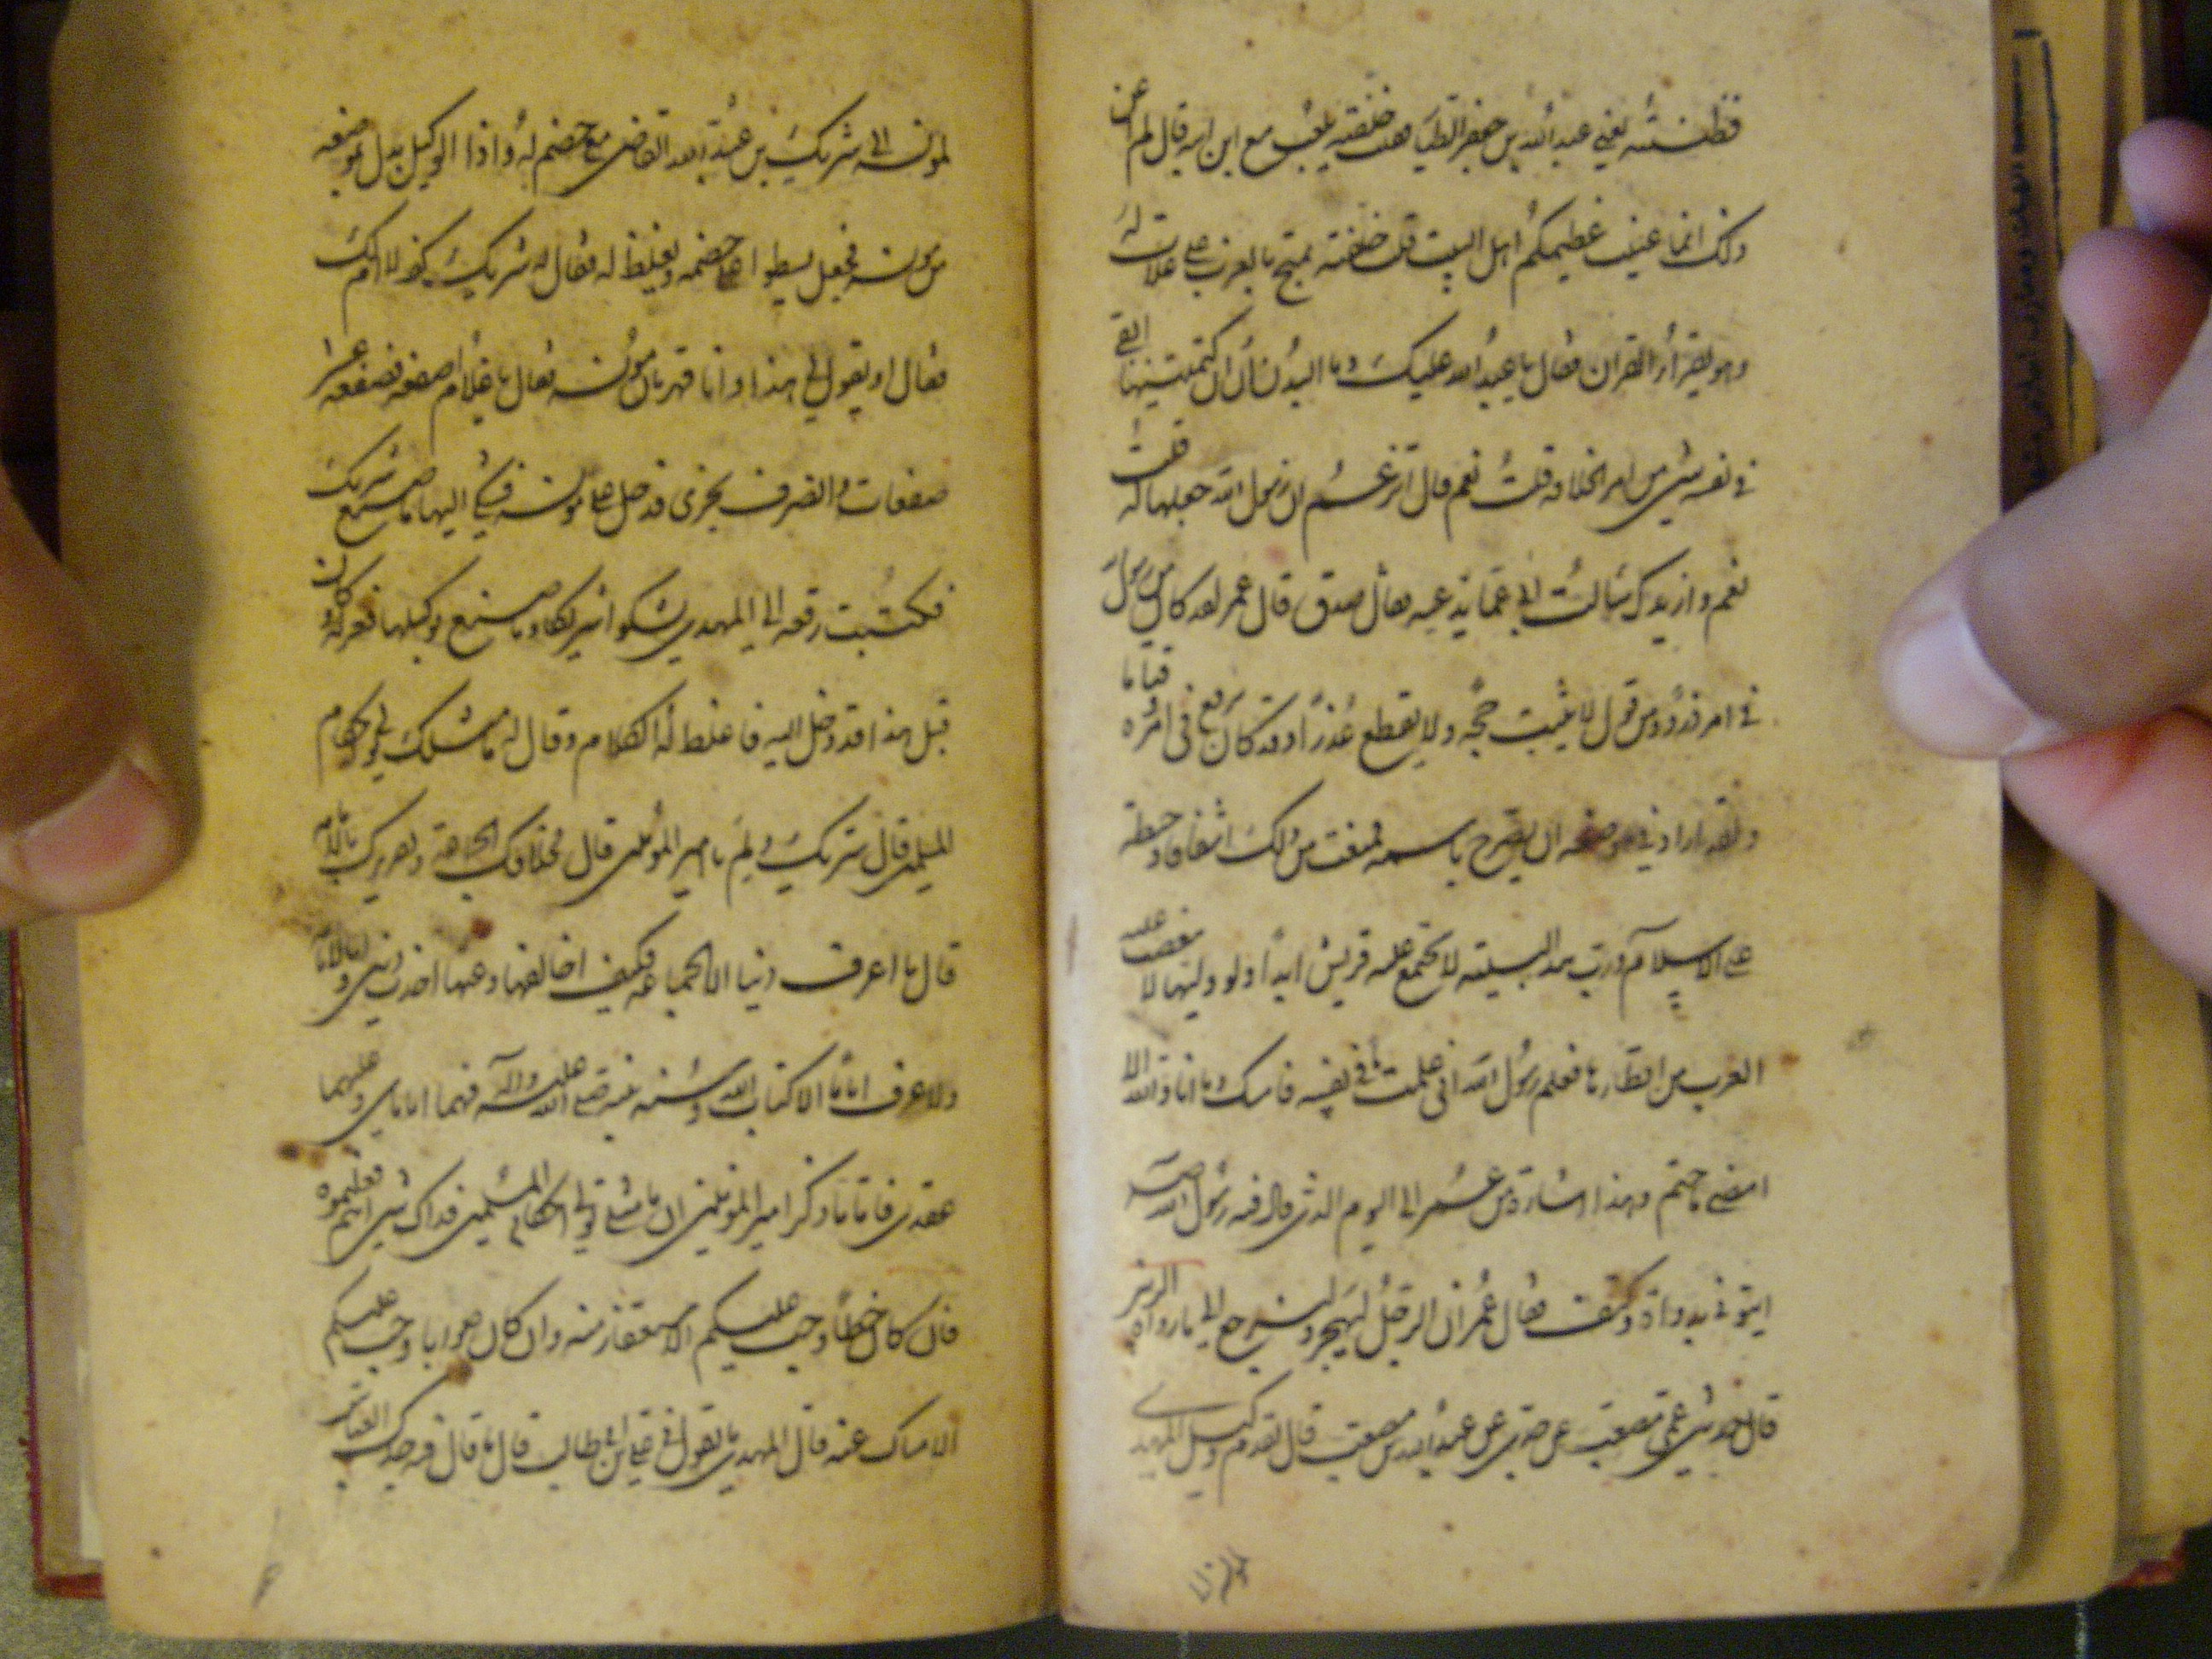 فظننته يعني عبد الله بن جعفر الطيار فقلت خلفته يلعب مع ابن ابيه قال لم اعن
ذلك انما عنيت عظيمكم اهل البيت قلت خلفته يمتح بالغرب على علات له
وهو يقرأ القران فقال يا عبد الله عليك دماء البدن ان كتمتنيها ابقي
في نفسه شيء من امر الخلافة قلت نعم قال اتزعم ان رسول الله جعلها له قلت
نعم وازيدك سالت ابي عما يدعيه فقال صدق قال عمر لقد كان من رسول
في امره ذرو من قول لا يثبت حجة ولا يقطع عذرا وقد كان يربع في امره وقتا ما
ولقد اراد في مرضه ان يصرح باسمه فمنعت من ذلك اشفاقا وحيطة
على الاسلام ورب هذه البنية لا تجتمع عليه قريش ابدا ولو وليها لانتقضت عليه
العرب من اقطارها فعلم رسول الله اني علمت ما في نفسه فامسك وابى الله الا
امضى ما حتم وهذا اشارة من عمر الى اليوم الذي قال فيه رسول الله
ايتوني بدواة وكتف فقال عمر ان الرجل ليهجر ولنرجع الى ما رواه الزبير
قال حدثني عمي مصعب عن جدي عن عبد الله بن مصعب قال تقدم وكيل المهدي
لمونسة الى شريك بن عبد الله القاضي مع خصم له واذا الوكيل يدل بموضعه
من مونسة فجعل يسطو على خصمه ويغلظ له فقال له شريك كف لا ام لك
فقال او تقول لي هذا وانا قهرمان مونسة فقال يا غلام اصفعه فصفعه عشر
صفعات وانصرف بخزي فدخل على مونسة فشكى اليها ما صنع شريك
فكتبت رقعة الى المهدي تشكو شريكا وما صنع بوكيلها فعزله وكان
قبل هذا قد دخل اليه فاغلظ له الكلام وقال له ما مثلك يولى احكام
المسلمين قال شريك ولم يا امير المؤمنين قال لخلافك الجماعة ولقولك بالامامة
قال ما اعرف دينا الا الجماعة فكيف اخالفها وعنها اخذت ديني واما الامامة
ولا اعرف اماما الا كتاب الله وسنة نبيه صلى الله عليه وآله فهما امامي وعليهما
عقدي فاما ما ذكر امير المؤمنين ان ما مثلي يولى احكام المسلمين فذاك شيء انتم فعلتموه
فان كان خطأ وجب عليكم الاستغفار منه وان كان صوابا وجب عليكم
الامساك عنه قال المهدي ما تقول في علي بن ابي طالب قال ما قال فيه جدك العباس